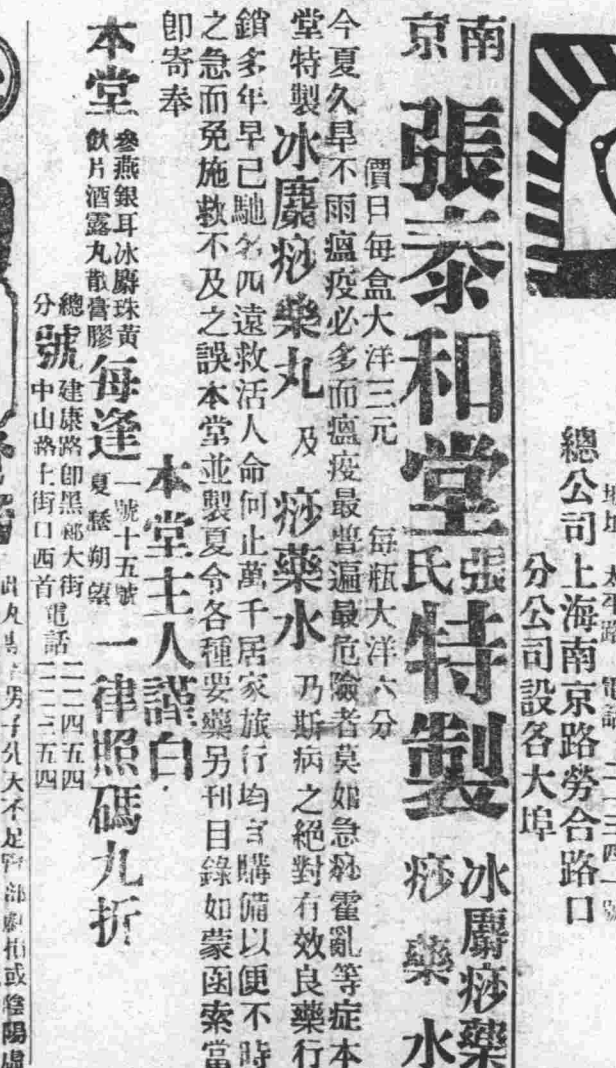 總公司上海南京路勞合路口
分公司設各大埠
南京
張泰和堂
張氏
特製
冰麝痧藥
痧藥水
價目每盒大洋三元
每瓶大洋六分
今夏久旱不雨瘟疫必多而瘟疫最普遍最危險者莫如急痧霍亂等症本
堂特製冰麝痧藥丸及痧藥水乃斯病之絕對有效良藥行
銷多年早已馳名四遠救活人命何止萬千居家旅行均宜購備以便不時
之急而免施救不及之誤本堂並製夏令各種要藥另刊目錄如蒙函索當
卽寄奉
本堂主人謹白
本堂
參燕銀耳冰麝珠黃
飲片酒露丸散膏膠
每逢
一號十五號
夏歷朔望
一律照碼九折
總號建康路卽黑廊大街
分號中山路上街口西首
電話
二二四五四
二二三五四
男子先天不足腎部虧損或陰陽虛